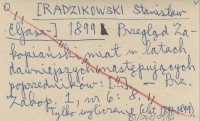 [RADZIKOWSKI Stanisław
Eljasz] 1899 Przegląd Za-
kopiański miał w latach
dawniejszych następujących
poprzedników: [...] — Prz.
Zakop. 1, nr 6: 8.
Tylko wyliczenie